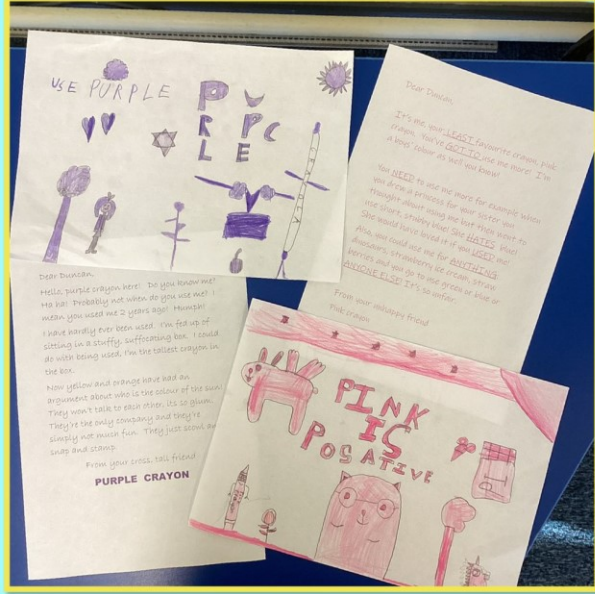 USE PURPLE
PURPLE
Dear Duncan,
Hello, purple crayon here! Do you know me?
Ha ha! Probably not when do you use me? I
mean you used me 2 years ago! Humph!
I have hardly ever been used. I'm fed up of
sitting in a stuffy, suffocating box. I could
do with being used, I'm the tallest crayon in
the box.
Now yellow and orange have had an
argument about who is the colour of the sun!
They won't talk to each other, its so glum.
They're the only company and they're
simply not much fun. They just scowl and
snap and stamp.
From your cross, tall friend
PURPLE CRAYON
Dear Duncan,
It's me, your LEAST favourite crayon, pink
crayon. You've GOT TO use me more! I'm
a boys' colour as well you know!
You NEED to use me more for example when
you drew a princess for your sister you
thought about using me but then went to
use short, stubby blue! She HATES blue!
She would have loved it if you USED me!
Also, you could use me for ANYTHING:
dinosaurs, strawberry ice cream, straw
berries and you go to use green or blue or
ANYONE ELSE! It's so unfair.
From your unhappy friend
Pink crayon
PINK
IS
POSATIVE